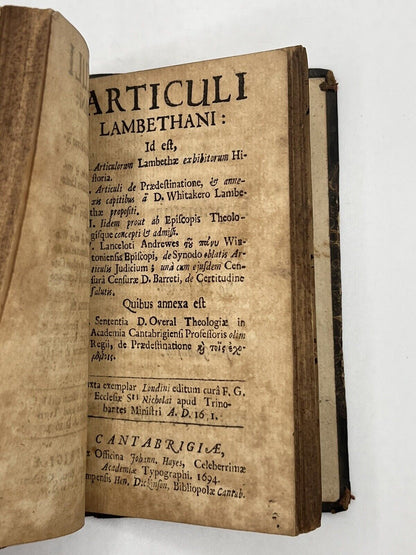 ARTICULI
LAMBETHANI:
Id est,
Articulorum Lambethæ exhibitorum Hi-
ſtoria.
Articuli de Prædeſtinatione, & anne-
xis capitibus à D. Whitakero Lambe-
thæ propoſiti.
I. Iidem prout ab Epiſcopis Theolo-
giſque concepti & admiſſi.
Lanceloti Andrewes τȣ͂ πάνυ Win-
toniensis Epiſcopi, de Synodo oblatis Ar-
ticulis Judicium; unà cum ejuſdem Cen-
ſurâ Cenſuræ D. Barreti, de Certitudine
Salutis.
Quibus annexa eſt
Sententia D. Overal Theologiæ in
Academia Cantabrigienſi Profeſſoris olim
Regii, de Prædeſtinatione
Juxta exemplar Londini editum curâ F. G.
Eccleſiæ Sti Nicholai apud Trino-
bantes Miniſtri A. D. 16 1.
CANTABRIGIÆ,
Ex Officina Johann. Hayes, Celeberrimæ
Academiæ Typographi. 1694.
Impenſis Hen. Dickinſon, Bibliopolæ Cantab.